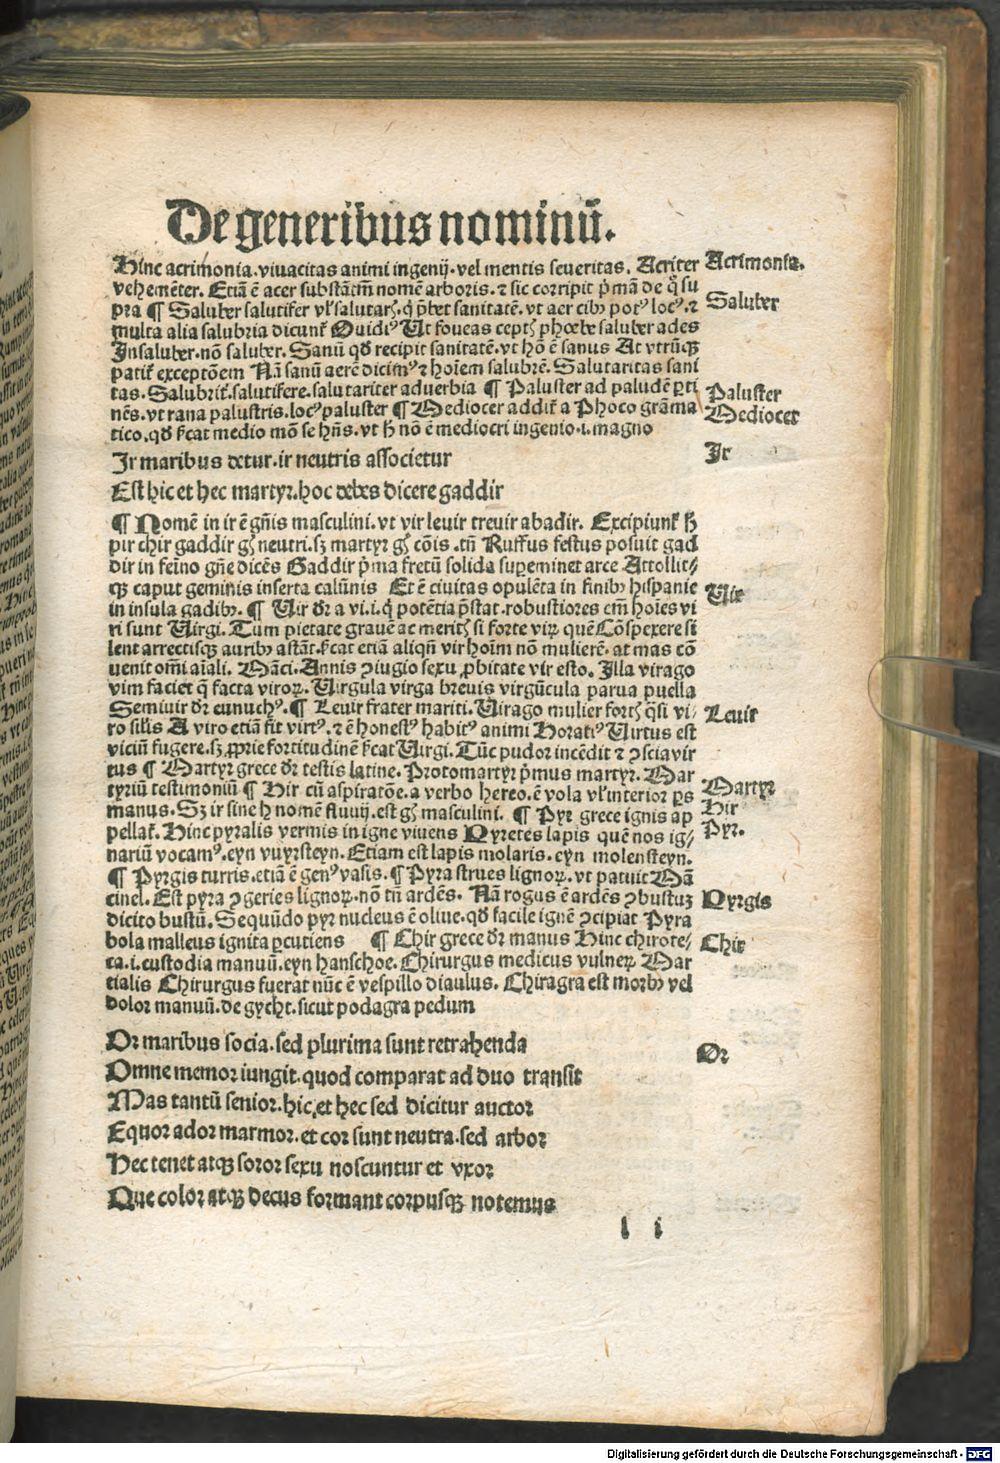 De generibus nominū.
Hinc acrimonia. viuacitas animi ingenij. vel mentis seueritas. Acriter
Acrimonia.
vehemēter. Etiā ē acer substātiuū nomē arboris. ⁊ sic corripit p̄mā de q̄ su
pra ¶ Saluber salutifer vl' salutarꝭ. q̄ p̄bet sanitatē. vt aer cibꝰ potꝰ locꝰ. ⁊
Saluber
multa alia salubria dicunt᷑ Ouidiꝰ Ut foueas ceptꝭ phœbe saluber ades
Insaluber. nō saluber. Sanū qd̄ recipit sanitatē. vt hō ē sanus At vtrūqꝫ
patit᷑ exceptōem Nā sanū aerē dicimꝰ ⁊ hoiem salubrē. Salutaritas sani
tas. Salubrit᷑. salutifere. salutariter aduerbia ¶ Paluster ad paludē ꝑti
Paluster
nēs. vt rana palustris. locꝰ paluster ¶ Mediocer addit᷑ a Phoco grāma
Mediocer
tico. qd̄ s̄cat medio mō se hn̄s. vt h̄ nō ē mediocri ingenio .i. magno
Ir maribus detur. ir neutris associetur
Ir
Est hic et hec martyr. hoc debes dicere gaddir
¶ Nomē in ir ē gn̄is masculini. vt vir leuir treuir abadir. Excipiunt᷑ h̄
pir chir gaddir gꝭ neutri. sꝫ martyr gꝭ cōis. tn̄ Ruffus festus posuit gad
dir in feīno gn̄e dicēs Gaddir p̄ma fretū solida suꝑeminet arce Attollit⸗
qꝫ caput geminis inserta calūnis Et ē ciuitas opulēta in finibꝰ hispanie
in insula gadibꝰ. ¶ Uir dr̄ a vi .i. q̄ potētia p̄stat. robustiores em̄ hoīes vi
Uir
ri sunt Uirgi. Tum pietate grauē ac meritꝭ si forte virꝝ quē Cōspexere si
lent arrectisqꝫ auribꝰ astāt. s̄cat etiā aliqn̄ vir hoīm nō mulierē. at mas cō
uenit om̄i aīali. Māci. Annis ꝯiugio sexu ꝓbitate vir esto. Illa virago
vim faciet q̄ facta viroꝝ. Uirgula virga breuis virgūcula parua puella
Semiuir dr̄ eunuchꝰ. ¶ Leuir frater mariti. Uirago mulier fortꝭ q̄si vi⸗
Leuir
ro silis A viro etiā fit virtꝰ. ⁊ ē honestꝰ habitꝰ animi Horatiꝰ Uirtus est
viciū fugere. sꝫ ꝓprie fortitudinē s̄cat Uirgi. Tūc pudor incēdit ⁊ ꝯscia vir
tus ¶ Martyr grece dr̄ testis latine. Protomartyr p̄mus martyr. Mar
tyriū testimoniū ¶ Hir cū aspiratōe. a verbo hereo. ē vola vl' interior ꝑs
Martyr
manus. Sꝫ ir sine h nomē fluuij. est gꝭ masculini. ¶ Pyr grece ignis ap
Hir
pellat᷑. Hinc pyralis vermis in igne viuens Pyretes lapis quē nos ig⸗
Pyr.
nariū vocamꝰ. eyn vuyrsteyn. Etiam est lapis molaris. eyn molensteyn.
¶ Pyrgis turris. etiā ē genꝰ vasis. ¶ Pyra strues lignoꝝ. vt patuit Mā
cinel. Est pyra ꝯgeries lignoꝝ. nō tn̄ ardēs. Nā rogus ē ardēs ꝯbustuꝫ
Pyrgis
dicito bustū. Sequūdo pyr nucleus ē oliue. qd̄ facile ignē ꝯcipiat Pyra
bola malleus ignita ꝑcutiens ¶ Chir grece dr̄ manus Hinc chirote⸗
Chir
ca .i. custodia manuū. eyn hanschoe. Chirurgus medicus vulneꝝ Mar
tialis Chirurgus fuerat nūc ē vespillo diaulus. Chiragra est morbꝰ vel
dolor manuū. de gycht. sicut podagra pedum
Or maribus socia. sed plurima sunt retrahenda
Or
Omne memor iungit. quod comparat ad duo transit
Mas tantū senior. hic. et hec sed dicitur auctor
Equor ador marmor. et cor sunt neutra. sed arbor
Hec tenet atqꝫ soror sexu noscuntur et vxor
Que color atqꝫ decus formant corpusqꝫ notemus
l i
Digitalisierung gefördert durch die Deutsche Forschungsgemeinschaft - DFG